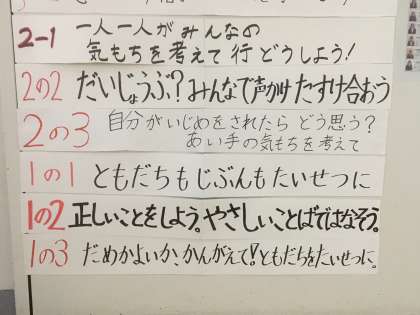 2-1 一人一人がみんなの
気もちを考えて行どうしよう!
2の2 だいじょうぶ?みんなで声かけたすけ合おう
2の3 自分がいじめをされたらどう思う?
あい手の気もちを考えて
1の1 ともだちもじぶんもたいせつに
1の2 正しいことをしよう。やさしいことばではなそう。
1の3 だめかよいか、かんがえて!ともだちをたいせつに。